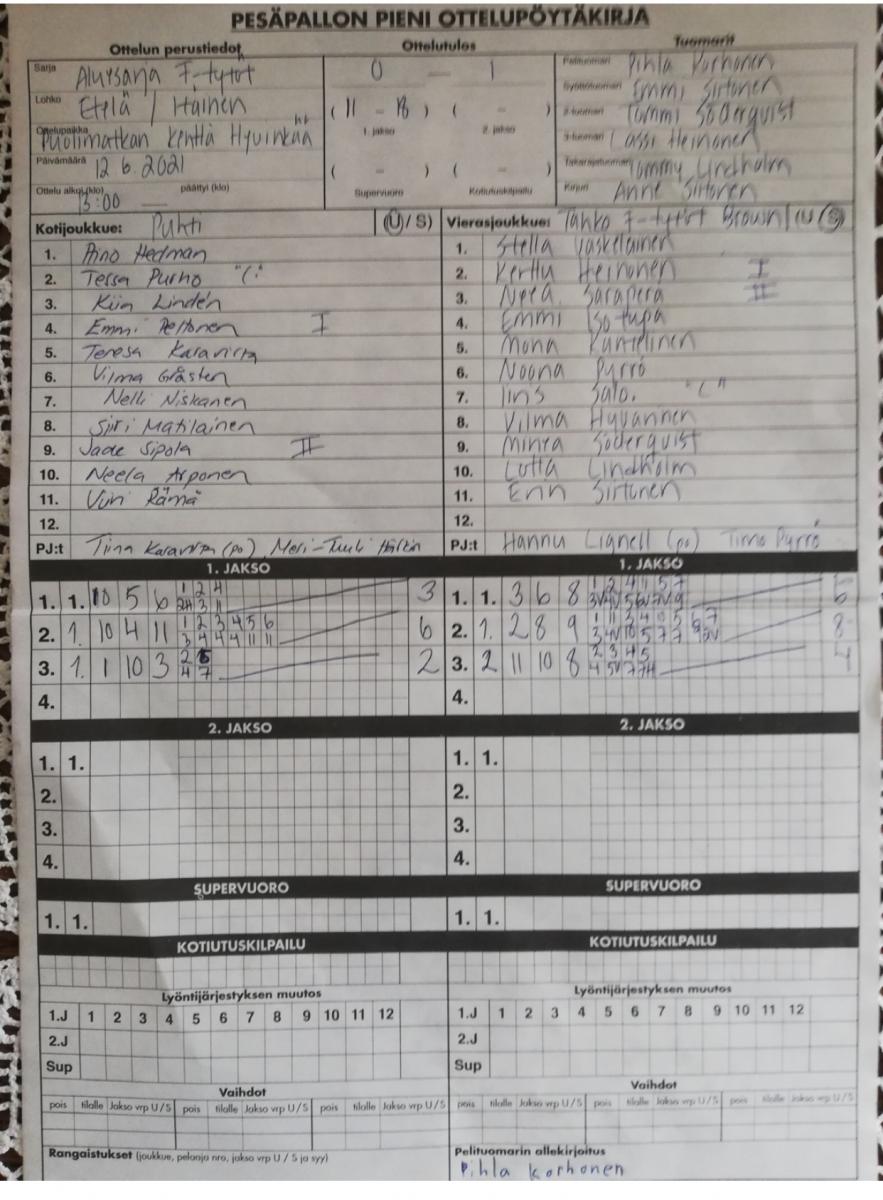 PESÄPALLON PIENI OTTELUPÖYTÄKIRJA
Ottelun perustiedot
Ottelutulos
Tuomarit
Sarja Alursarja F-tytöt
0 — 1
Pelituomari Pihla Korhonen
Lohko Etelä / Itäinen
(11 - 18) ( - )
1. jakso 2. jakso
Syöttötuomari Emmi Sirtonen
2-tuomari Tommi Söderquist
Ottelupaikka Puolimatkan kenttä Hyvinkää
3-tuomari Lassi Heinonen
Päivämäärä 12 6. 2021
( - ) ( - )
Supervuoro Kotiutuskilpailu
Takarajatuomari Tommy Lindholm
Ottelu alkoi (klo) 13:00 päättyi (klo)
Kirjuri Anne Sirtonen
Kotijoukkue: Puhti (U/S)
Vierasjoukkue: Tahko F-tytöt Brown (U/S)
1. Aino Hedman
2. Tessa Purho "C"
3. Kiia Lindén
4. Emmi Peltonen I
5. Teresa Karavirta
6. Vilma Gråsten
7. Nelli Niskanen
8. Siiri Matilainen
9. Jade Sipola II
10. Neela Arponen
11. Vivi Rämä
12.
PJ:t Tiina Karavirta (po), Meri-Tuuli
1. Stella Vaskelainen
2. Kerttu Heinonen I
3. Neea Sarapera II
4. Emmi Isotupa
5. Mona
6. Noona Pyrrö
7. Iiris Salo. "C"
8. Vilma Hyvännen
9. Minea Söderquist
10. Lotta Lindholm
11. Erin Sirtonen
12.
PJ:t Hannu Lignell (po) Timo Pyrrö
1. JAKSO
1. 1. 10 5 6 3
2. 1. 10 4 11 1 2 3 4 5 6 6
3 4 4 4 11 11
3. 1. 1 10 3 2
4.
1. JAKSO
1. 1. 3 6 8 6
2. 1. 2 8 9 8
3. 2 11 10 8 2 3 4 5 4
4.
2. JAKSO
1. 1.
2.
3.
4.
2. JAKSO
1. 1.
2.
3.
4.
SUPERVUORO
1. 1.
SUPERVUORO
1. 1.
KOTIUTUSKILPAILU
KOTIUTUSKILPAILU
Lyöntijärjestyksen muutos
1.J 1 2 3 4 5 6 7 8 9 10 11 12
2.J
Sup
Lyöntijärjestyksen muutos
1.J 1 2 3 4 5 6 7 8 9 10 11 12
2.J
Sup
Vaihdot
pois tilalle Jakso vrp U/S pois tilalle Jakso vrp U/S pois tilalle Jakso vrp U/S
Vaihdot
pois tilalle Jakso vrp U/S pois tilalle Jakso vrp U/S pois tilalle Jakso vrp U/S
Rangaistukset (joukkue, pelaaja nro, jakso vrp U / S ja syy)
Pelituomarin allekirjoitus
Pihla Korhonen